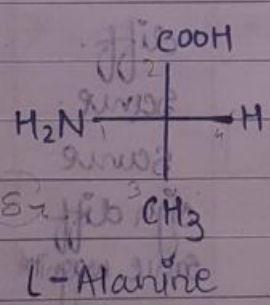 COOH
2
H₂N 1 4 H
3
CH₃
L-Alanine